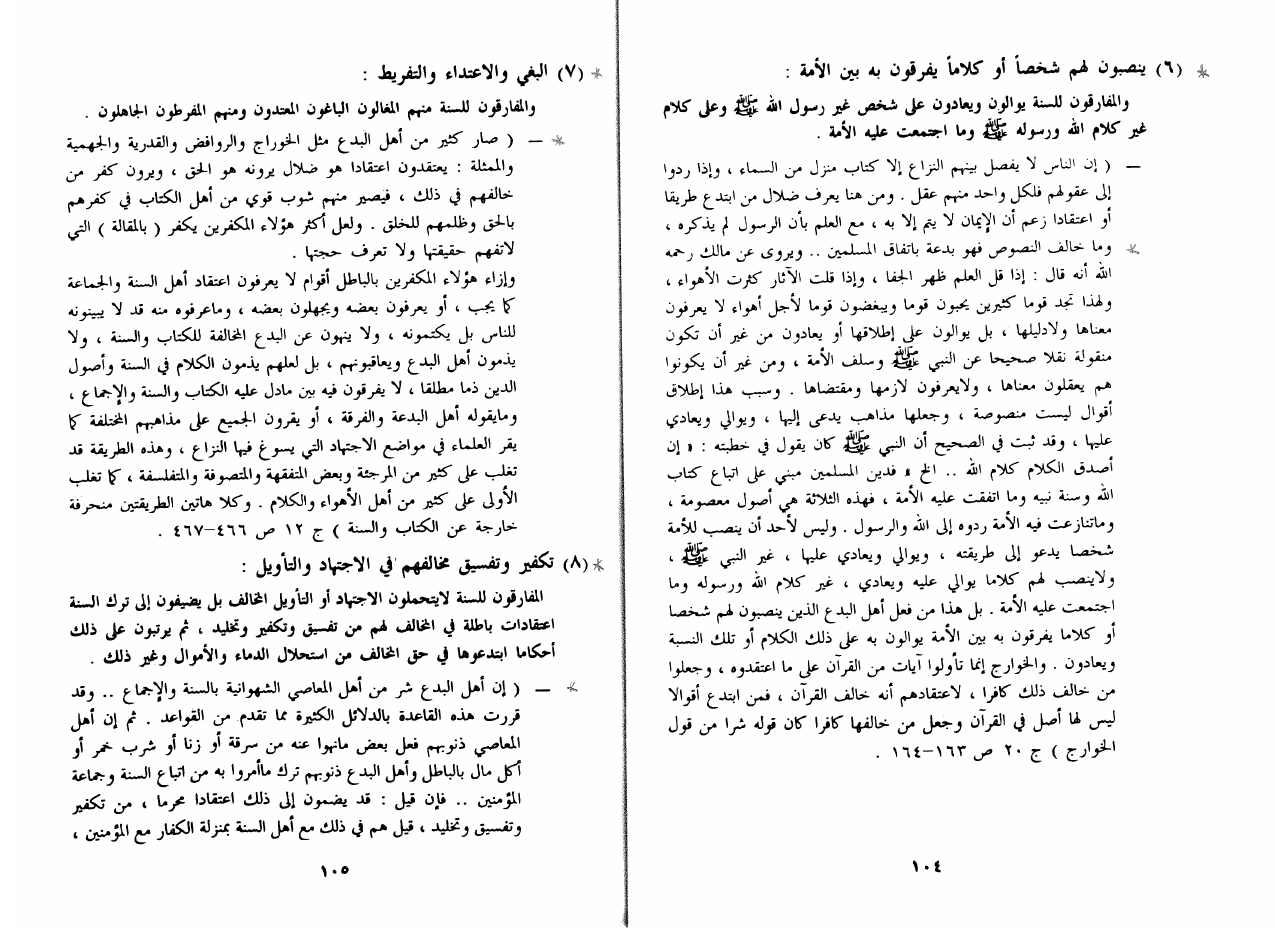 (٦) ينصبون لهم شخصاً أو كلاماً يفرقون به بين الأمة :
والمفارقون للسنة يوالون ويعادون على شخص غير رسول الله ﷺ وعلى كلام
غير كلام الله ورسوله ﷺ وما اجتمعت عليه الأمة .
— ( إن الناس لا يفصل بينهم النزاع إلا كتاب منزل من السماء ، وإذا ردوا
إلى عقولهم فلكل واحد منهم عقل . ومن هنا يعرف ضلال من ابتدع طريقا
أو اعتقادا زعم أن الإيمان لا يتم إلا به ، مع العلم بأن الرسول لم يذكره ،
وما خالف النصوص فهو بدعة باتفاق المسلمين .. ويروى عن مالك رحمه
الله أنه قال : إذا قل العلم ظهر الجفا ، وإذا قلت الآثار كثرت الأهواء ،
ولهذا تجد قوما كثيرين يحبون قوما ويبغضون قوما لأجل أهواء لا يعرفون
معناها ولادليلها ، بل يوالون على إطلاقها أو يعادون من غير أن تكون
منقولة نقلا صحيحا عن النبي ﷺ وسلف الأمة ، ومن غير أن يكونوا
هم يعقلون معناها ، ولايعرفون لازمها ومقتضاها . وسبب هذا إطلاق
أقوال ليست منصوصة ، وجعلها مذاهب يدعى إليها ، ويوالي ويعادي
عليها ، وقد ثبت في الصحيح أن النبي ﷺ كان يقول في خطبته : « إن
أصدق الكلام كلام الله .. الخ » فدين المسلمين مبني على اتباع كتاب
الله وسنة نبيه وما اتفقت عليه الأمة ، فهذه الثلاثة هي أصول معصومة ،
وماتنازعت فيه الأمة ردوه إلى الله والرسول . وليس لأحد أن ينصب للأمة
شخصا يدعو إلى طريقته ، ويوالي ويعادي عليها ، غير النبي ﷺ ،
ولاينصب لهم كلاما يوالي عليه ويعادي ، غير كلام الله ورسوله وما
اجتمعت عليه الأمة . بل هذا من فعل أهل البدع الذين ينصبون لهم شخصا
أو كلاما يفرقون به بين الأمة يوالون به على ذلك الكلام أو تلك النسبة
ويعادون . والخوارج إنما تأولوا آيات من القرآن على ما اعتقدوه ، وجعلوا
من خالف ذلك كافرا ، لاعتقادهم أنه خالف القرآن ، فمن ابتدع أقوالا
ليس لها أصل في القرآن وجعل من خالفها كافرا كان قوله شرا من قول
الخوارج ) ج ٢٠ ص ١٦٣–١٦٤ .
١٠٤
(٧) البغي والاعتداء والتفريط :
والمفارقون للسنة منهم المغالون الباغون المعتدون ومنهم المفرطون الجاهلون .
— ( صار كثير من أهل البدع مثل الخوراج والروافض والقدرية والجهمية
والممثلة : يعتقدون اعتقادا هو ضلال يرونه هو الحق ، ويرون كفر من
خالفهم في ذلك ، فيصير منهم شوب قوي من أهل الكتاب في كفرهم
بالحق وظلمهم للخلق . ولعل أكثر هؤلاء المكفرين يكفر ( بالمقالة ) التي
لاتفهم حقيقتها ولا تعرف حجتها .
وإزاء هؤلاء المكفرين بالباطل أقوام لا يعرفون اعتقاد أهل السنة والجماعة
كما يجب ، أو يعرفون بعضه ويجهلون بعضه ، وماعرفوه منه قد لا يبينونه
للناس بل يكتمونه ، ولا ينهون عن البدع المخالفة للكتاب والسنة ، ولا
يذمون أهل البدع ويعاقبونهم ، بل لعلهم يذمون الكلام في السنة وأصول
الدين ذما مطلقا ، لا يفرقون فيه بين مادل عليه الكتاب والسنة والإجماع ،
ومايقوله أهل البدعة والفرقة ، أو يقرون الجميع على مذاهبهم المختلفة كما
يقر العلماء في مواضع الاجتهاد التي يسوغ فيها النزاع ، وهذه الطريقة قد
تغلب على كثير من المرجئة وبعض المتفقهة والمتصوفة والمتفلسفة ، كما تغلب
الأولى على كثير من أهل الأهواء والكلام . وكلا هاتين الطريقتين منحرفة
خارجة عن الكتاب والسنة ) ج ١٢ ص ٤٦٦–٤٦٧ .
(٨) تكفير وتفسيق مخالفهم في الاجتهاد والتأويل :
المفارقون للسنة لايتحملون الاجتهاد أو التأويل المخالف بل يضيفون إلى ترك السنة
اعتقادات باطلة في المخالف لهم من تفسيق وتكفير وتخليد ، ثم يرتبون على ذلك
أحكاما ابتدعوها في حق المخالف من استحلال الدماء والأموال وغير ذلك .
— ( إن أهل البدع شر من أهل المعاصي الشهوانية بالسنة والإجماع .. وقد
قررت هذه القاعدة بالدلائل الكثيرة مما تقدم من القواعد . ثم إن أهل
المعاصي ذنوبهم فعل بعض مانهوا عنه من سرقة أو زنا أو شرب خمر أو
أكل مال بالباطل وأهل البدع ذنوبهم ترك ماأمروا به من اتباع السنة وجماعة
المؤمنين .. فإن قيل : قد يضمون إلى ذلك اعتقادا محرما ، من تكفير
وتفسيق وتخليد ، قيل هم في ذلك مع أهل السنة بمنزلة الكفار مع المؤمنين ،
١٠٥